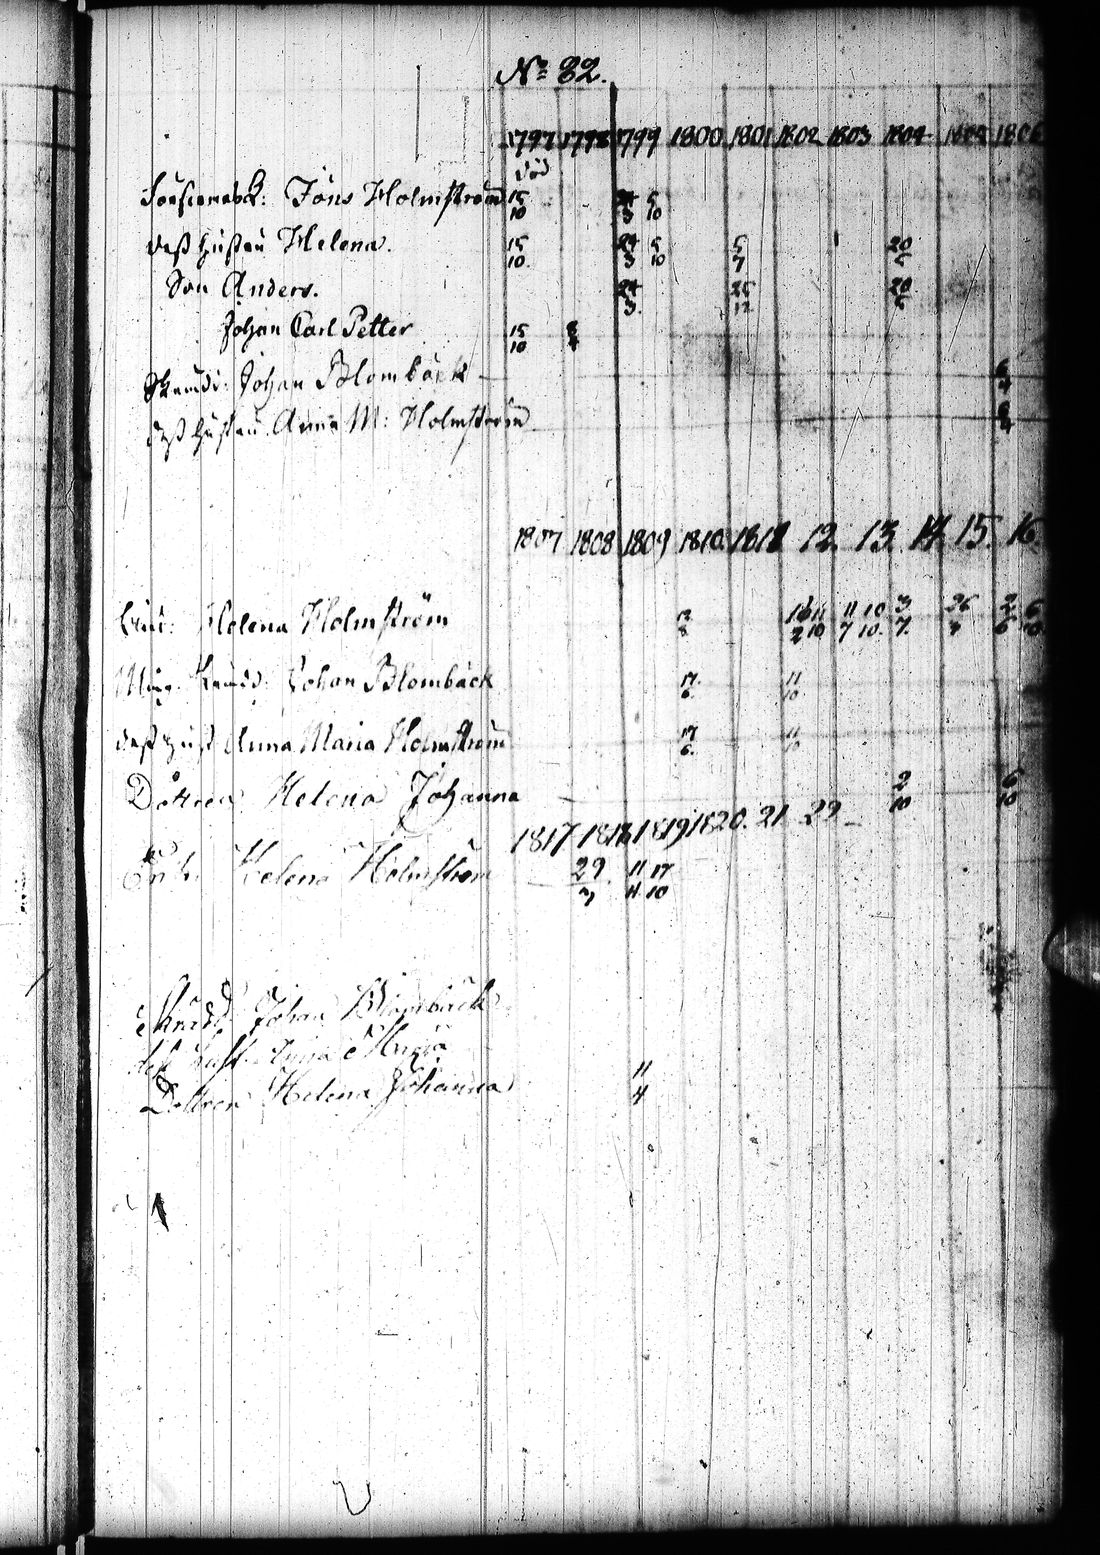 No 82.
1797 1798 1799 1800 1801 1802 1803 1804 1805 1806
död
Jöns Holmström 15 24 5
10 3 10
deß Hustru Helena. 15 24 5 5 20
10. 3 10 7 5
Son Anders. 24 25 20
3. 12 5
Johan Carl Petter 15 8
10 4
Johan Blombäck 6
4
deß Hustru Anna M: Holmström 6
4
1807 1808 1809 1810 1811 12. 13 14. 15. 16.
Helena Holmström 16 11 11 10 3 26 2 6
8 2 10 7 10. 7. 6 10
Johan Blombäck 17. 11
6. 10
deß Hust Anna Maria Holmström 17 11
6. 10
Dottren Helena Johanna 2 6
10 10
1817 1818 1819 1820. 21 22
Enk. Helena Holmström 29 11 17
3 4 10
Johan Blombäck
deß Hust. Anna Maria
Dottren Helena Johanna 11
4